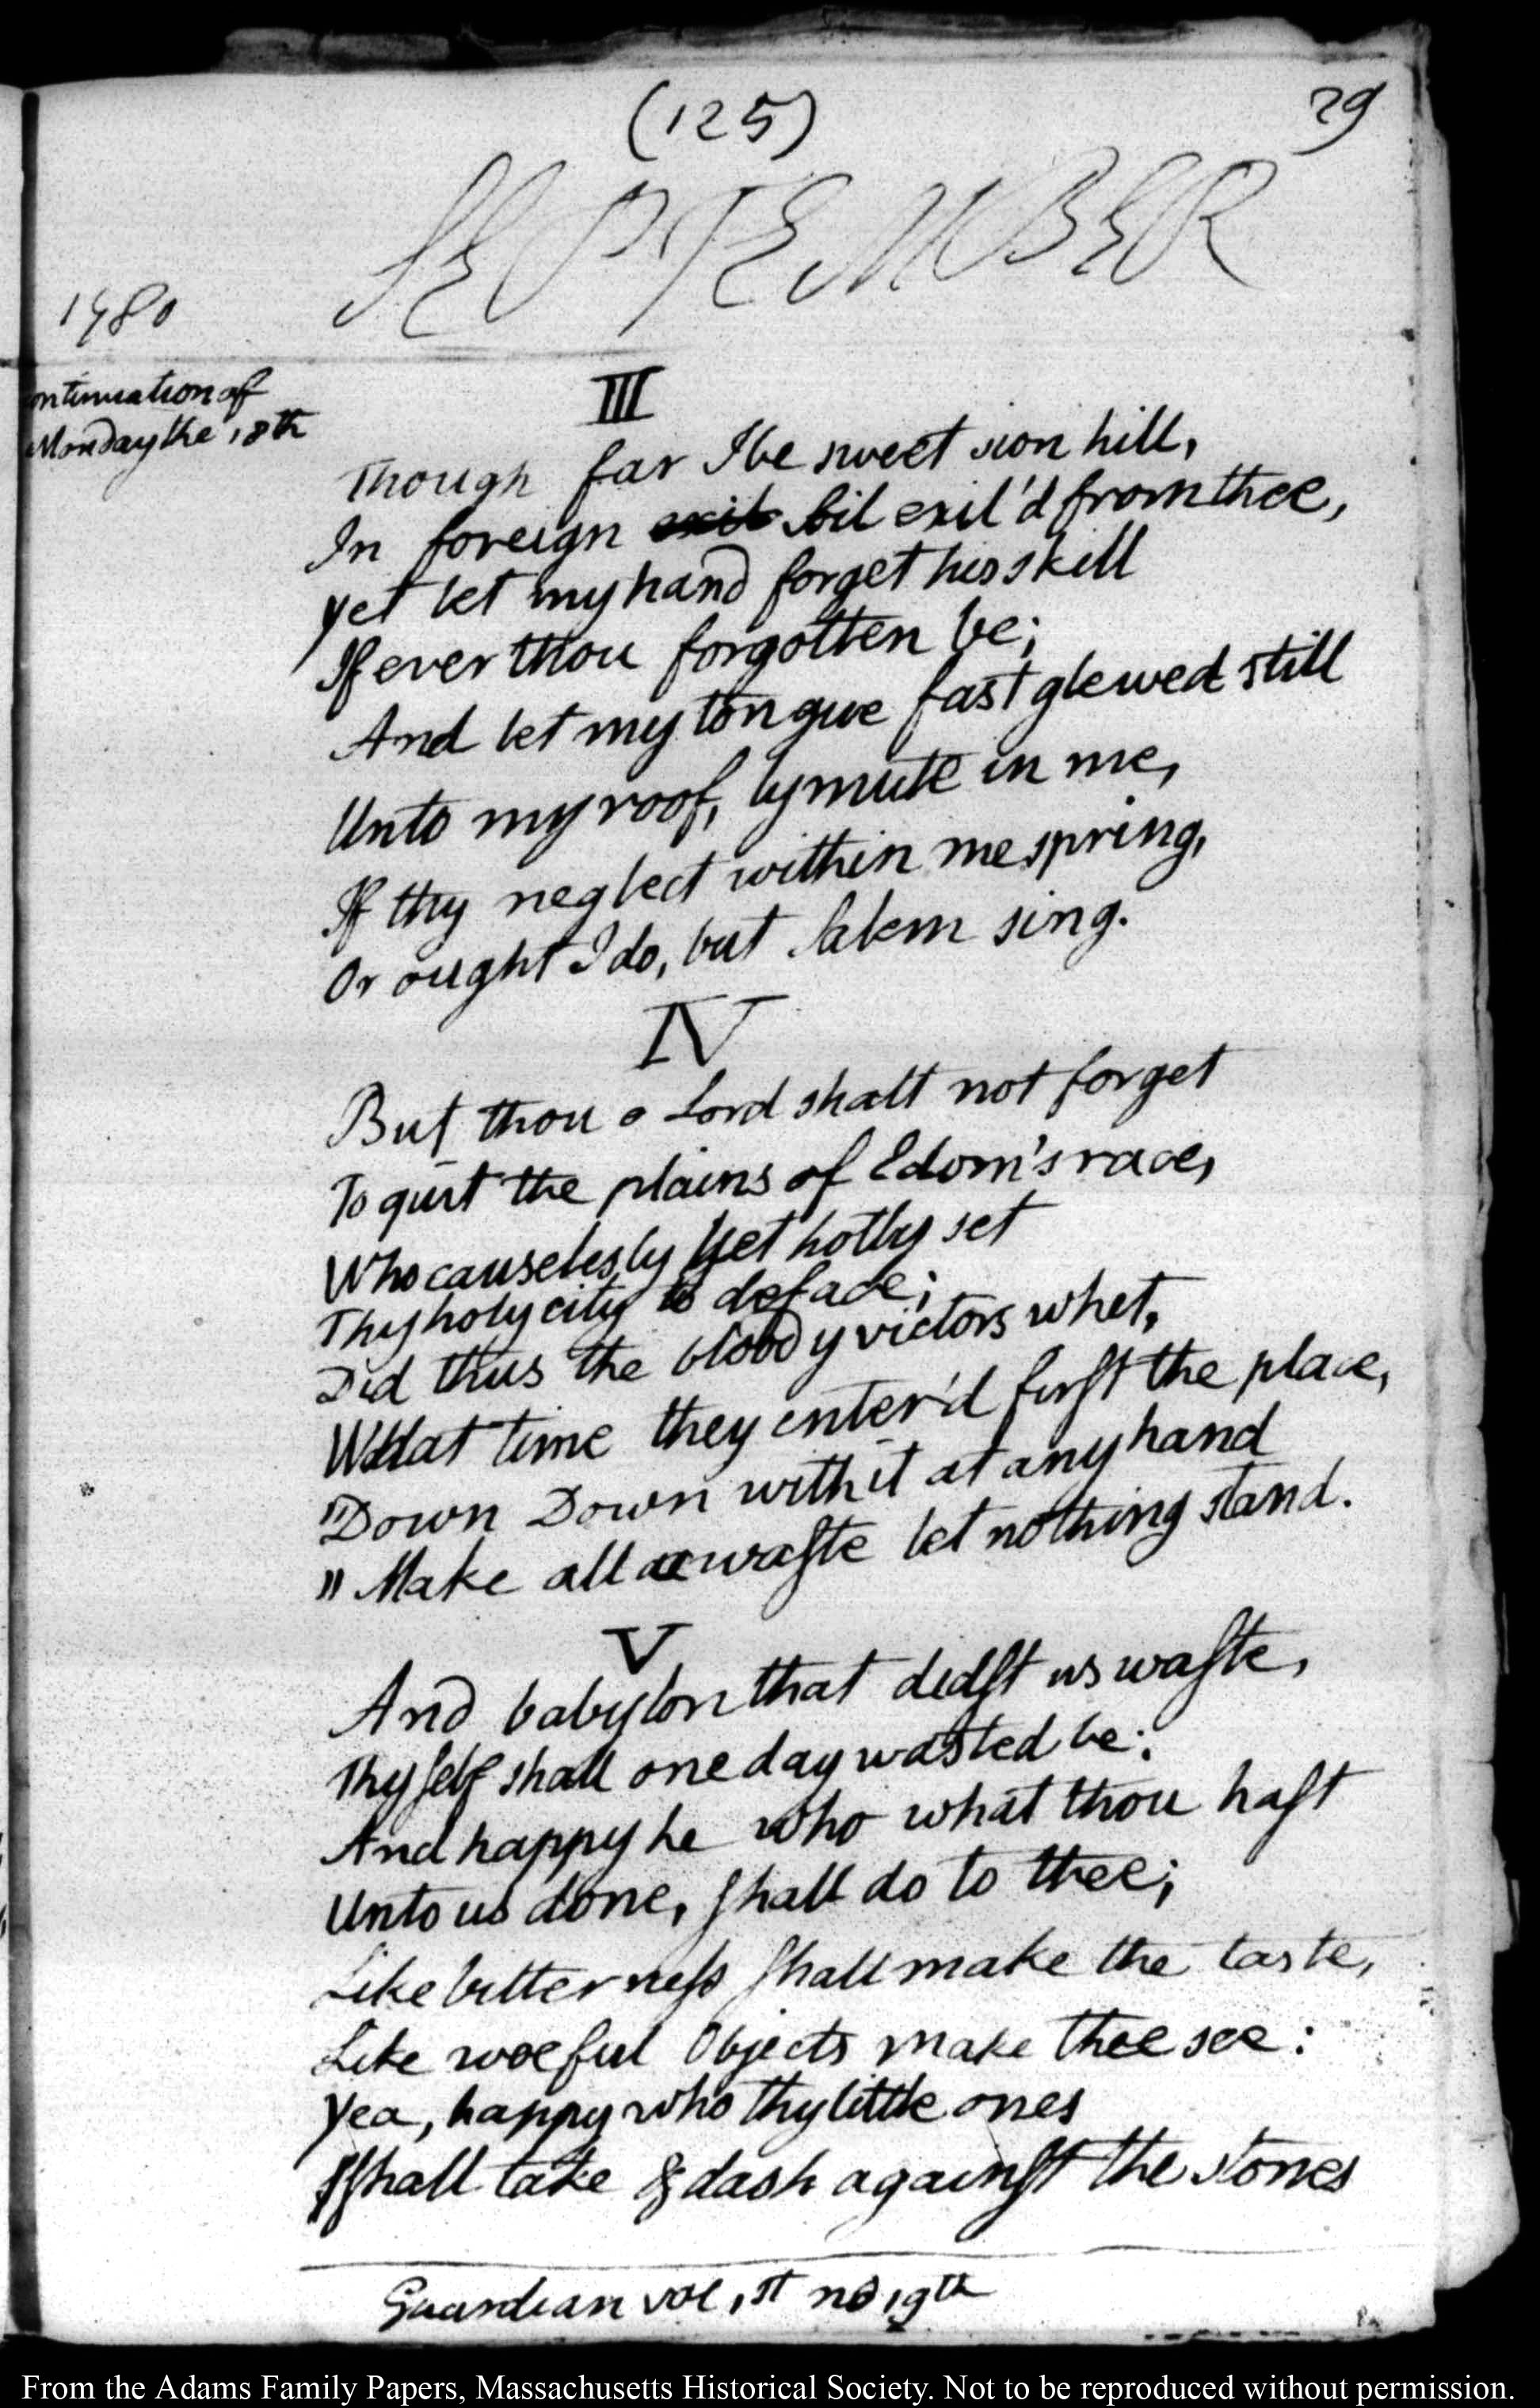 (125)
29
SEPTEMBER
1780
ontinuation of
Monday the 18th
III
Though far I be sweet sion hill,
In foreign exile soil exil'd from thee,
yet let my hand forget his skill
If ever thou forgotten be;
And let my tongue fast glewed still
Unto my roof, ly mute in me,
If thy neglect within me spring,
Or ought I do, but Salem sing.
IV
But thou o Lord shalt not forget
To quit the plains of Edom's race,
Who causelesly yet hotly set
Thy holy city to deface;
Did thus the bloody victors whet,
What time they enter'd first the place,
"Down Down with it at any hand
" Make all a waste let nothing stand.
V
And babylon that didst us waste,
Thyself shall one day wasted be:
And happy he who what thou hast
Unto us done, shall do to thee;
Like bitterness shall make the taste,
Like woeful Objects make thee see:
yea, happy who thy little ones
Shall take & dash against the stones
Guardian vol 1st no 19th
From the Adams Family Papers, Massachusetts Historical Society. Not to be reproduced without permission.